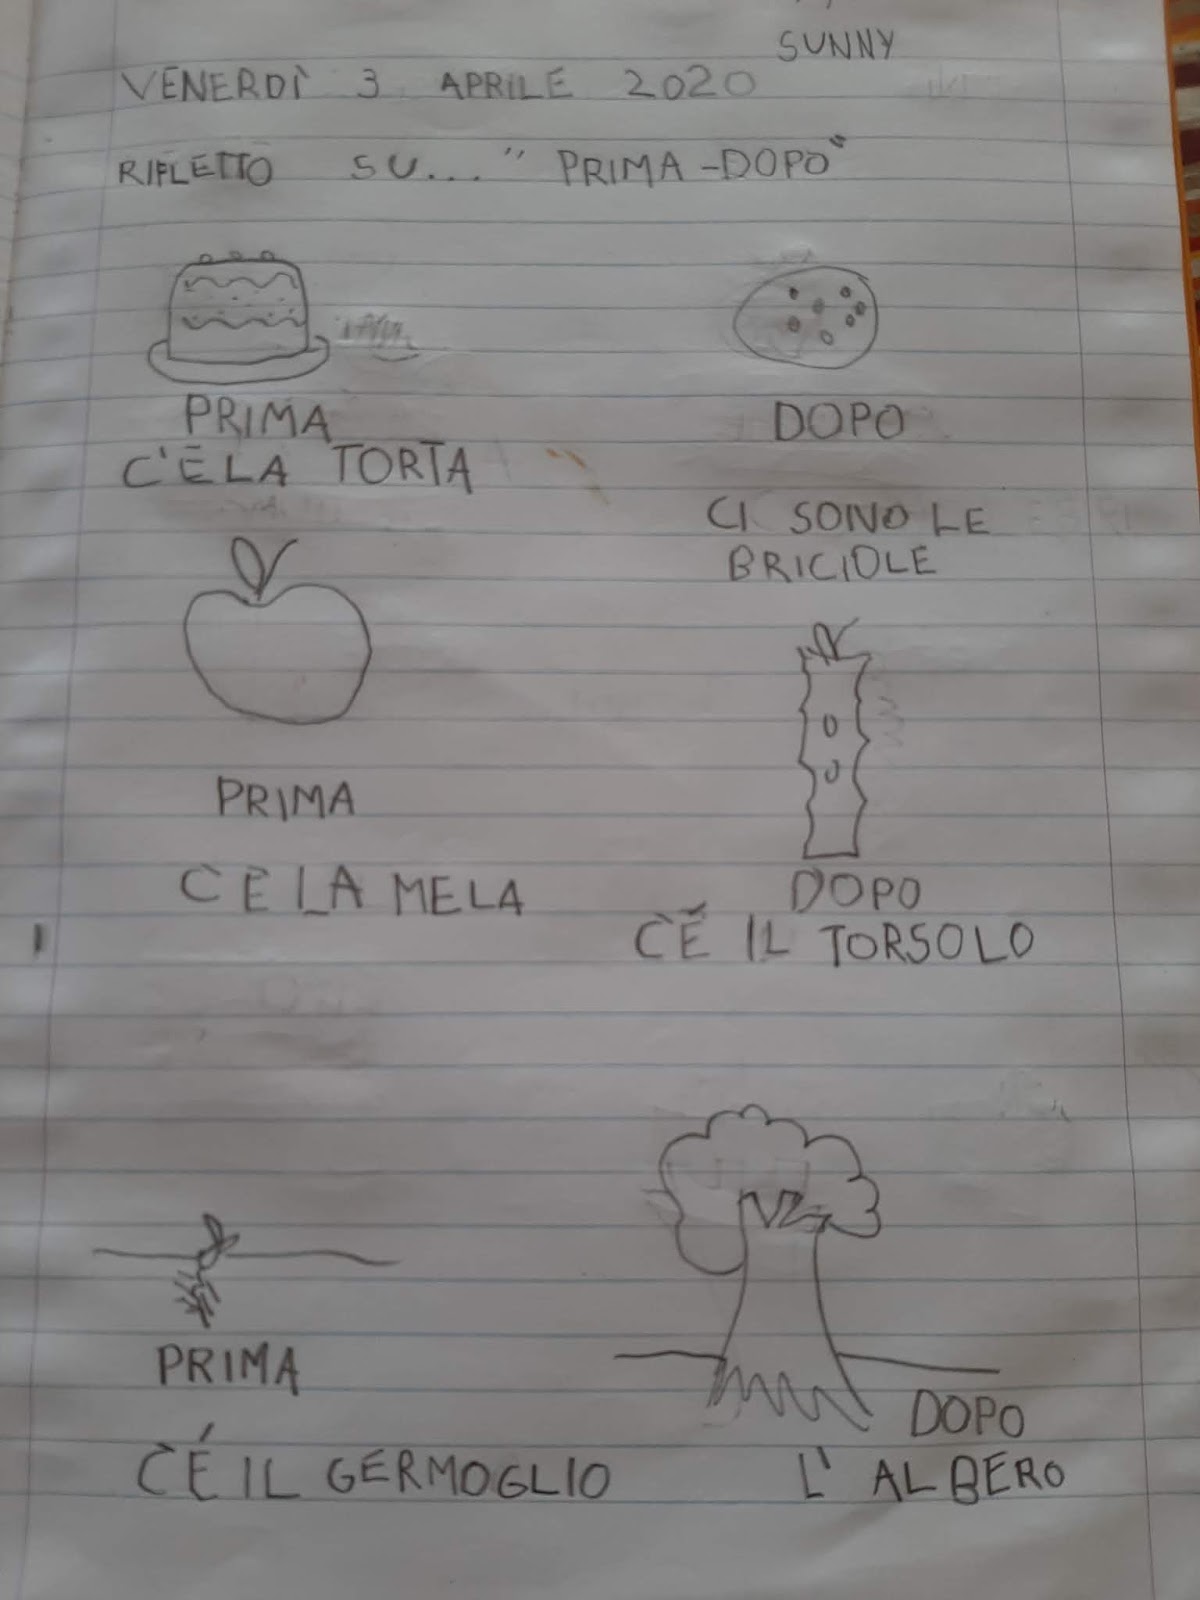 SUNNY
VENERDÌ 3 APRILE 2020
RIFLETTO SU... "PRIMA-DOPO"
PRIMA
C'È LA TORTA
DOPO
CI SONO LE
BRICIOLE
PRIMA
C'E LA MELA
DOPO
C'È IL TORSOLO
PRIMA
C'É IL GERMOGLIO
DOPO
L'ALBERO